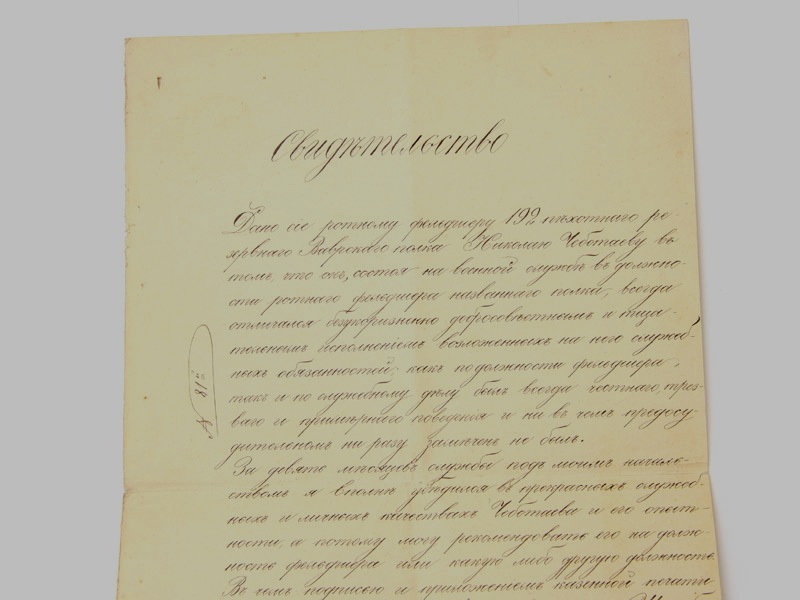 Свидѣтельство
Дано сіе ротному фельдшеру 192 пѣхотнаго ре-
зервнаго Ваврскаго полка Николаю Чеботаеву въ
томъ, что онъ, состоя на военной службѣ въ должно-
сти ротнаго фельдшера названнаго полка, всегда
отличался безукоризненно добросовѣстнымъ и тща-
тельнымъ исполненіемъ возложенныхъ на него служеб-
ныхъ обязанностей; какъ по должности фельдшера,
такъ и по служебному дѣлу былъ всегда честнаго, трез-
ваго и примѣрнаго поведенія и ни въ чемъ предосу-
дительномъ ни разу замѣченъ не былъ.
За девять мѣсяцевъ службы подъ моимъ началь-
ствомъ я вполнѣ убѣдился въ прекрасныхъ служеб-
ныхъ и личныхъ качествахъ Чеботаева и его опыт-
ности, а потому могу рекомендовать его на долж-
ность фельдшера или какую либо другую должность.
Въ чемъ подписью и приложеніемъ казенной печати
№ 81й